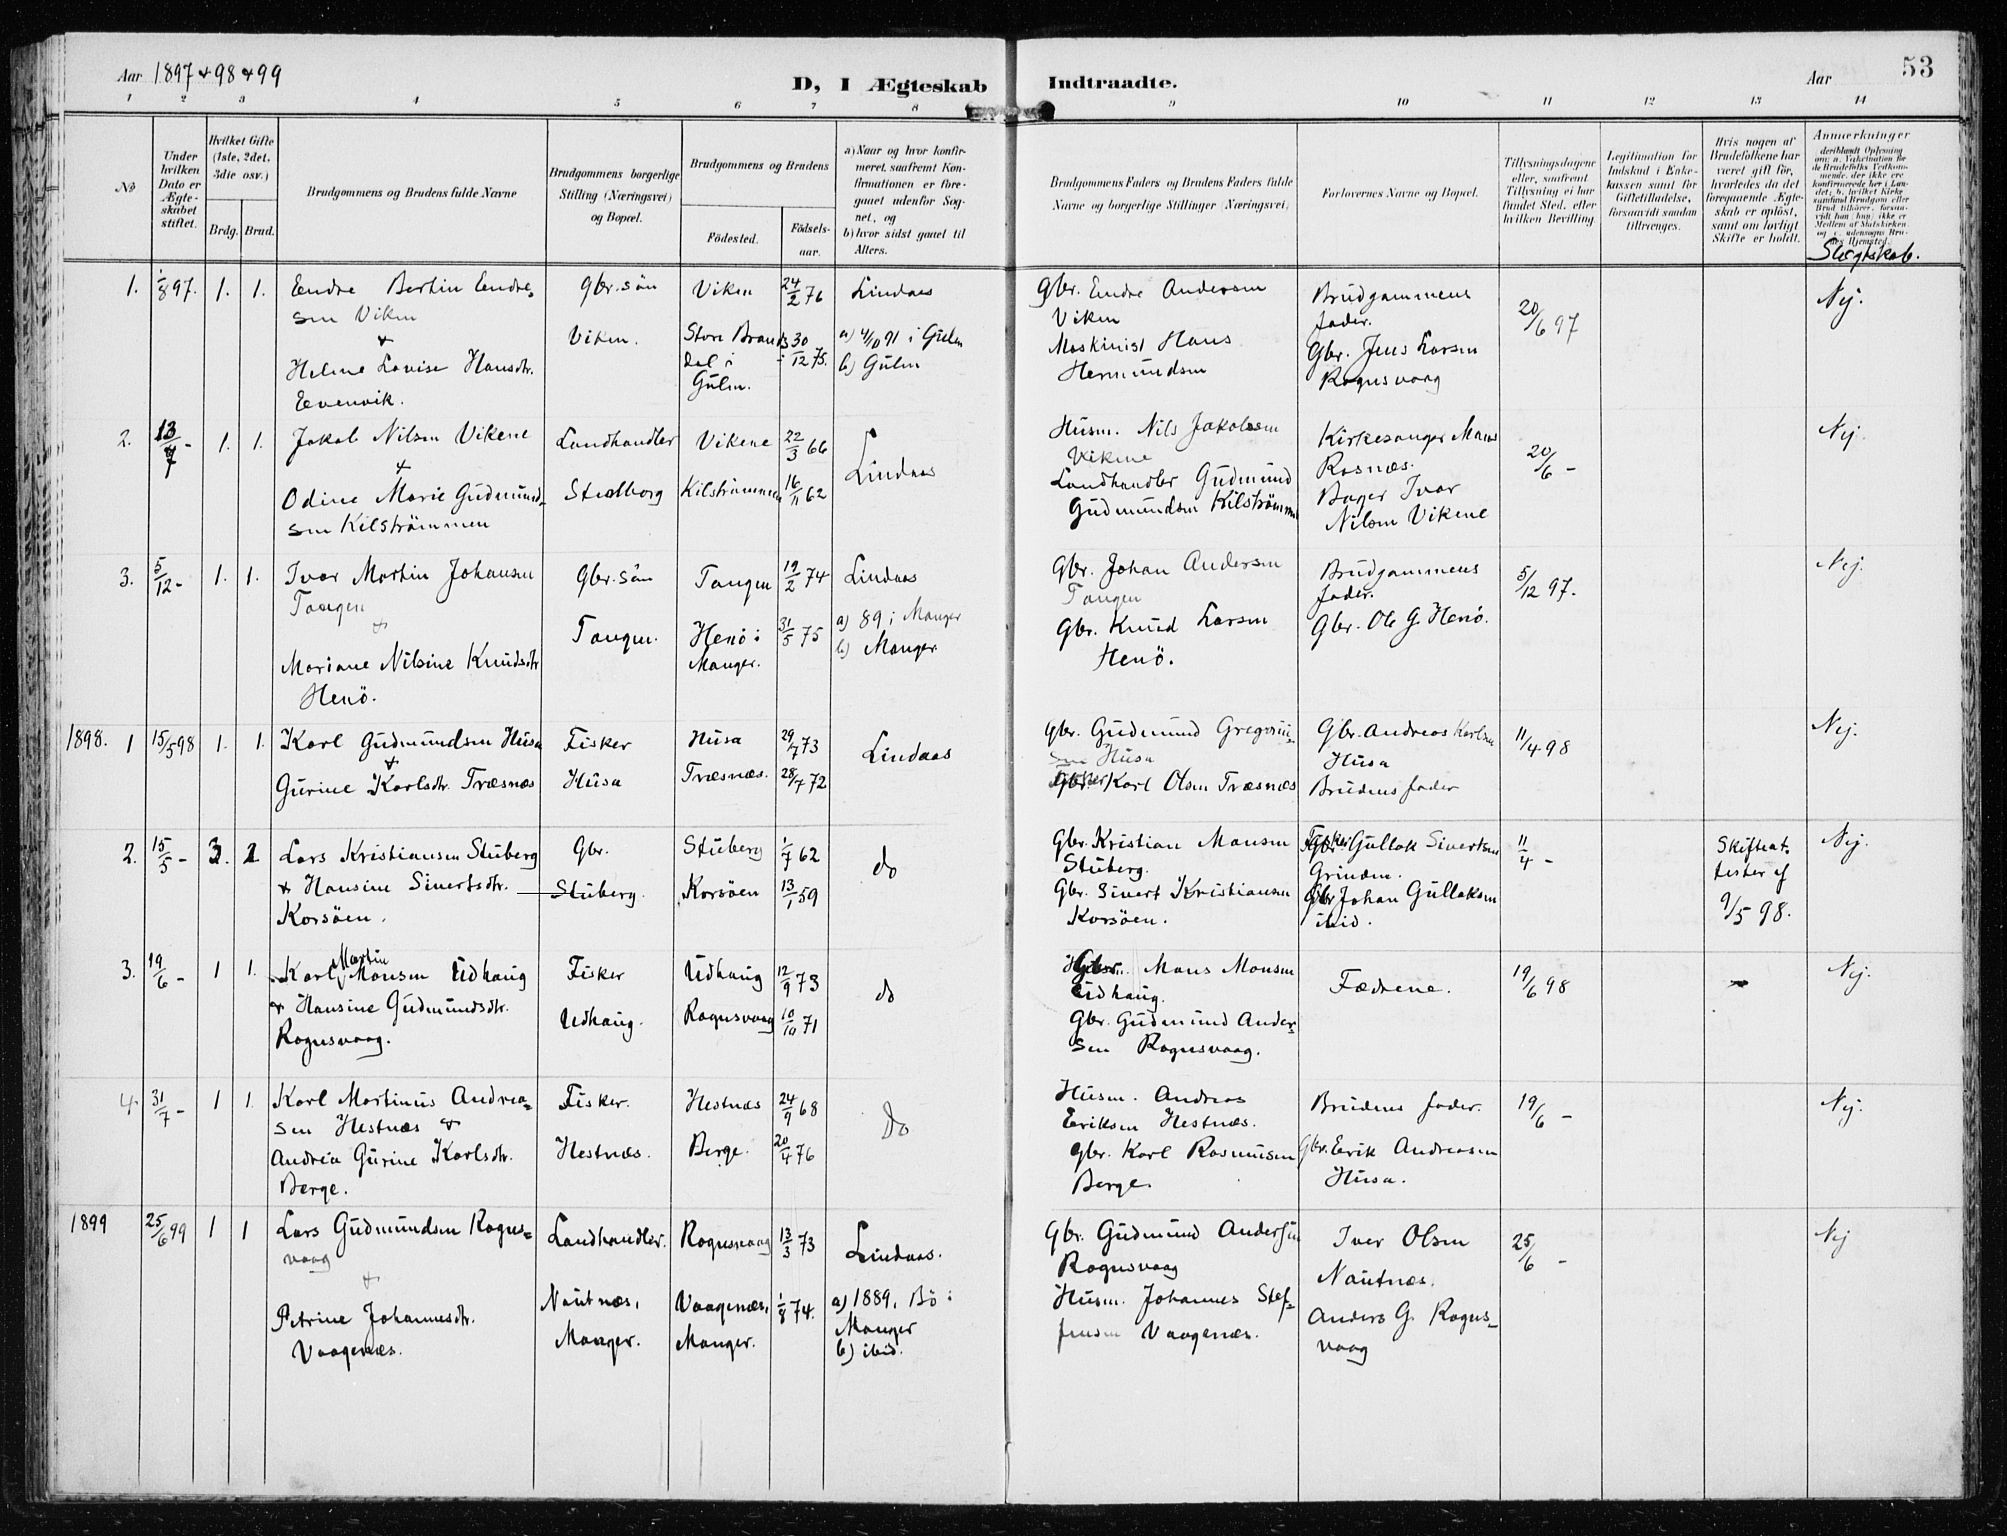 Aar 1897 & 98 & 99
D, I Ægteskab Indtraadte.
Aar 53
1 2 3 4 5 6 7 8 9 10 11 12 13 14
No
Under hvilken Dato er Ægte-skabet stiftet.
Hvilket Gifte (1ste, 2det, 3die osv.)
Brdg. Brud.
Brudgommens og Brudens fulde Navne
Brudgommens borgerlige Stilling (Næringsvei) og Bopæl.
Brudgommens og Brudens
Födested.
Födsels-aar.
a) Naar og hvor konfir-meret, saafremt Kon-firmationen er fore-gaaet udenfor Sog-net, og
b) hvor sidst gaaet til Alters.
Brudgommens Faders og Brudens Faders fulde Navne og borgerlige Stillinger (Næringsvei)
Forlovernes Navne og Bopæl.
Tillysningsdagene eller, saafremt Tillysning ei har fundet Sted, efter hvilken Bevilling.
Legitimation for Indskud i Enke-kassen samt for Giftetilladelse, forsaavidt saadan tiltrænges.
Hvis nogen af Brudefolkene har været gift før, hvorledes da det foregaaende Ægte-skab er opløst, samt om lovligt Skifte er holdt.
Anmærkninger
Slægtskab.
1. 1/8 97. 1. 1.
Endre Bertin Endre-
sen Viken
&
Helene Lovise Hansdtr.
Evenvik.
Gbr. sön
Viken.
Viken 24/2 76
Store Brands-
dal i
Gulen. 30/12 75.
Lindaas
a) 4/10 91 i Gulen
b) Gulen
Gbr. Endre Andersen
Viken
Maskinist Hans
Hermundsen
Brudgommens
fader.
Gbr. Jens Larsen
Rognsvaag
20/6 97
Nej.
2. 13/7 - 1. 1.
Jakob Nilsen Vikene
&
Odine Marie Gudmund-
sen Kilströmmen
Landhandler
Stedborg
Vikene 22/3 66
Kilströmmen 16/11 62
Lindaas
Husm. Nils Jakobsen
Vikene
Landhandler Gudmund
Gudmundsen Kilströmmen
Kirkesanger Mons
Rosnæs.
Bager Ivar
Nilsen Vikene
20/6 -
Nej.
3. 5/12 - 1. 1.
Ivar Martin Johansen
Tangen
&
Mariane Nilsine Knudsdtr
Henö.
Gbr. sön
Tangen.
Tangen 19/2 74
Henö i
Manger. 31/5 75
Lindaas
a) 89 i Manger
b) Manger
Gbr. Johan Andersen
Tangen
Gbr. Knud Larsen
Henö.
Brudgommens
fader.
Gbr. Ole G. Henö.
5/12 97.
Nej.
1898. 1 15/5 98 1. 1.
Karl Gudmundsen Husa
&
Gurine Karlsdtr. Træsnæs
Fisker
Husa
Husa 29/7 73
Træsnæs. 28/7 72
Lindaas
Gbr. Gudmund Gregorius-
sen Husa
Karl Olsen Træsnæs
Gbr. Andreas Karlsen
Husa
Brudens fader
11/4 98
Nej.
2. 15/5 -
Lars Kristiansen Stuberg
& Hansine Sivertsdtr.
Korsöen.
Gbr.
Stuberg.
Stuberg 1/7 62
Korsöen 13/1 59
do
Gbr. Kristian Monsen
Stuberg.
Gbr. Sivert Kristiansen
Korsöen.
Gullak Sivertsen
Grinden.
Gbr Johan Gullaksen
ibid.
11/4 -
Skifteat-
tester af
9/5 98.
Nej.
3. 19/6 - 1 1.
Karl Martin Monsen Udhaug
& Hansine Gudmundsdtr.
Rognsvaag.
Fisker
Udhaug.
Udhaug 12/9 73
Rognsvaag 10/10 71
do
Mons Monsen
Udhaug.
Gbr. Gudmund Ander-
sen Rognsvaag.
Fædrene.
19/6 98
-
Nej.
4. 31/7 - 1 1.
Karl Martinus Andrea-
sen Hestnæs &
Andrea Gurine Karlsdtr.
Berge.
Fisker.
Hestnæs.
Hestnæs 24/9 68
Berge. 20/4 76
do
Husm. Andreas
Eriksen Hestnæs.
Gbr. Karl Rasmussen
Berge.
Brudens fader.
Gbr. Erik Andreasen
Husa.
19/6 -
Nej.
1899 25/6 99 1 1
Lars Gudmundsen Rogns-
vaag
&
Petrine Johannesdtr.
Vaagenæs.
Landhandler.
Nautnæs,
Manger.
Rognsvaag 13/3 73
Vaagenæs,
Manger. 1/8 74.
Lindaas.
a) 1889, Bö i
Manger
b) ibid.
Gbr. Gudmund Andersen
Rognsvaag
Husm. Johannes Stef-
fensen Vaagenæs.
Iver Olsen
Nautnæs.
Anders G. Rogns-
vaag
25/6 -
Nej